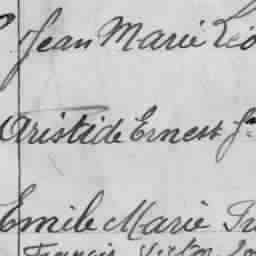 Jean Marie Léo
Aristide Ernest
Emile Marie
Francis Victor